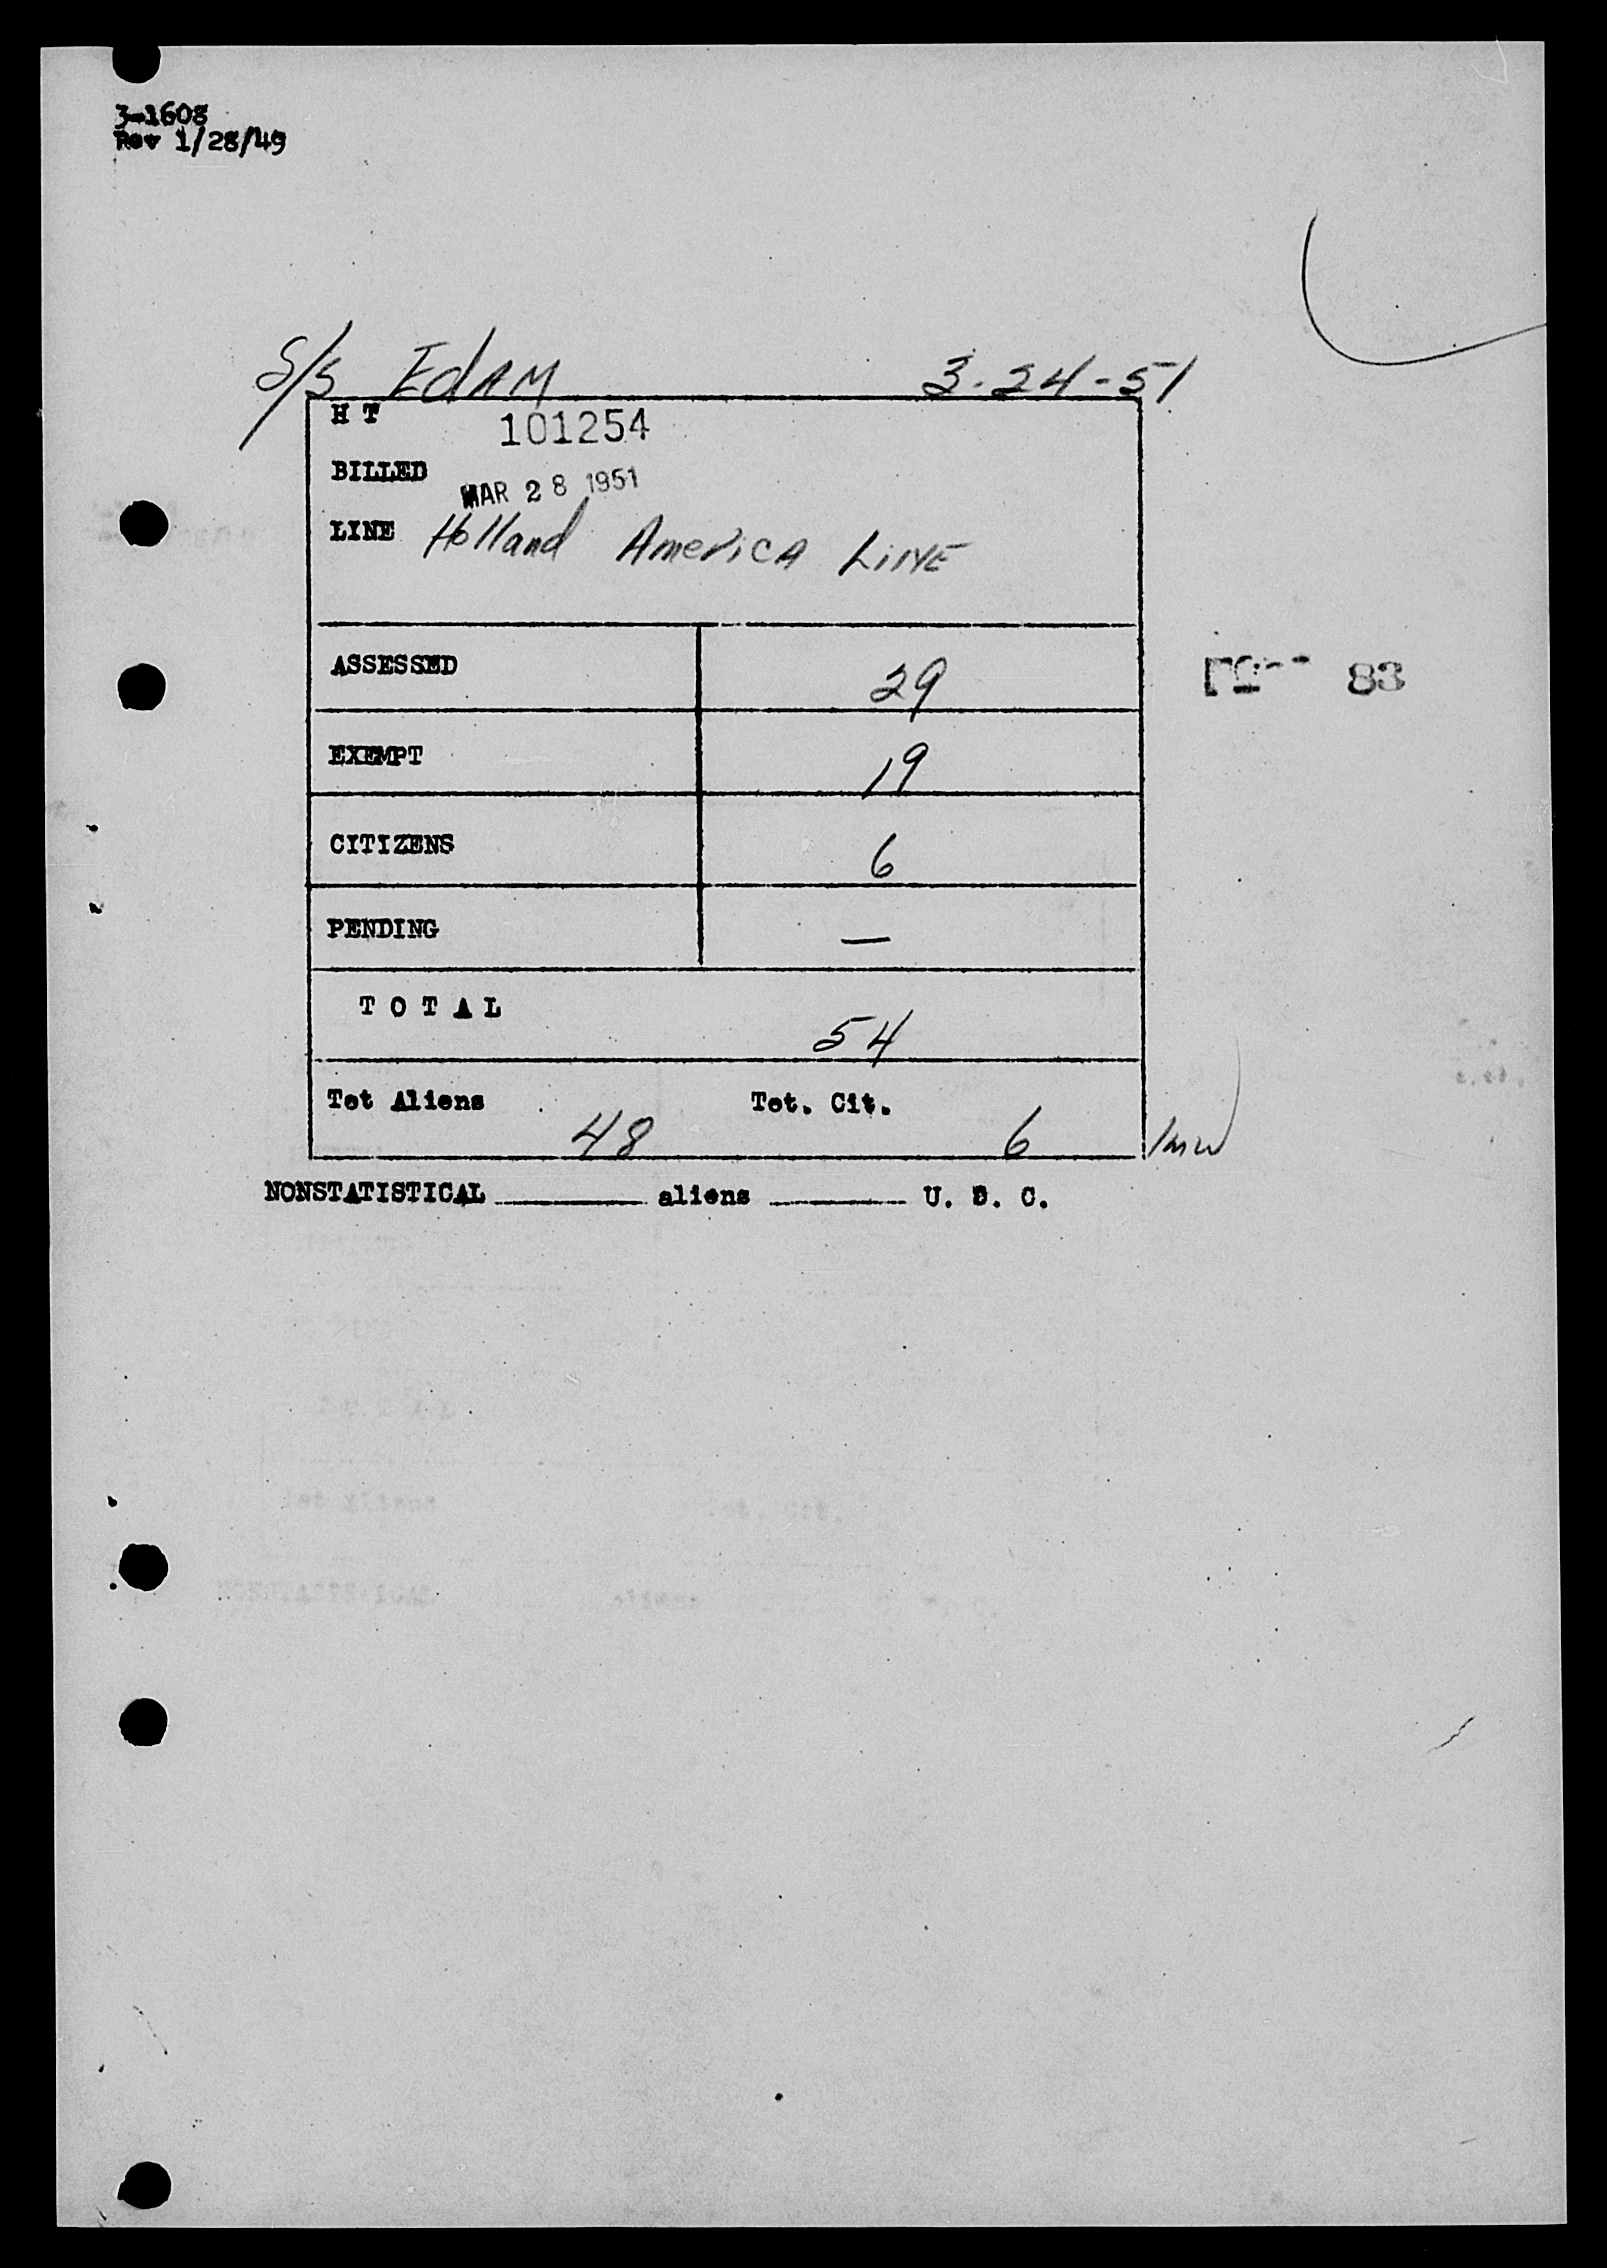 3-1608
Rev 1/28/49
S/S EdAM 3-24-51
H T 101254
BILLED MAR 28 1951
LINE Holland America Line
ASSESSED 29
EXEMPT 19
83
CITIZENS 6
PENDING —
T O T A L 54
Tot Aliens 48 Tot. Cit. 6
NONSTATISTICAL ______ aliens ______ U. S. C.